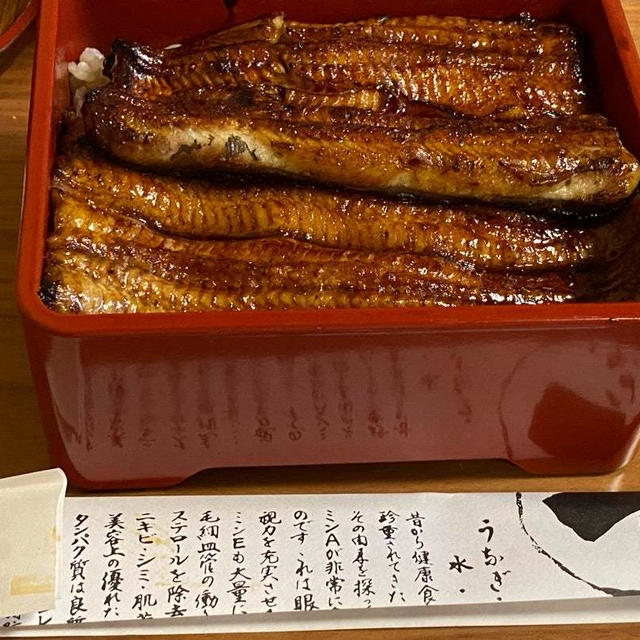 うなぎ・
水・
昔から健康食
珍重されてきた
その由来を探っ
ミンAが非常に
のです これは眼
視力を充実させ
ミンEも大量に
毛細血管の働
ステロールを除去
ニキビ・シミ・肌
美容上の優れた
タンパク質は良質